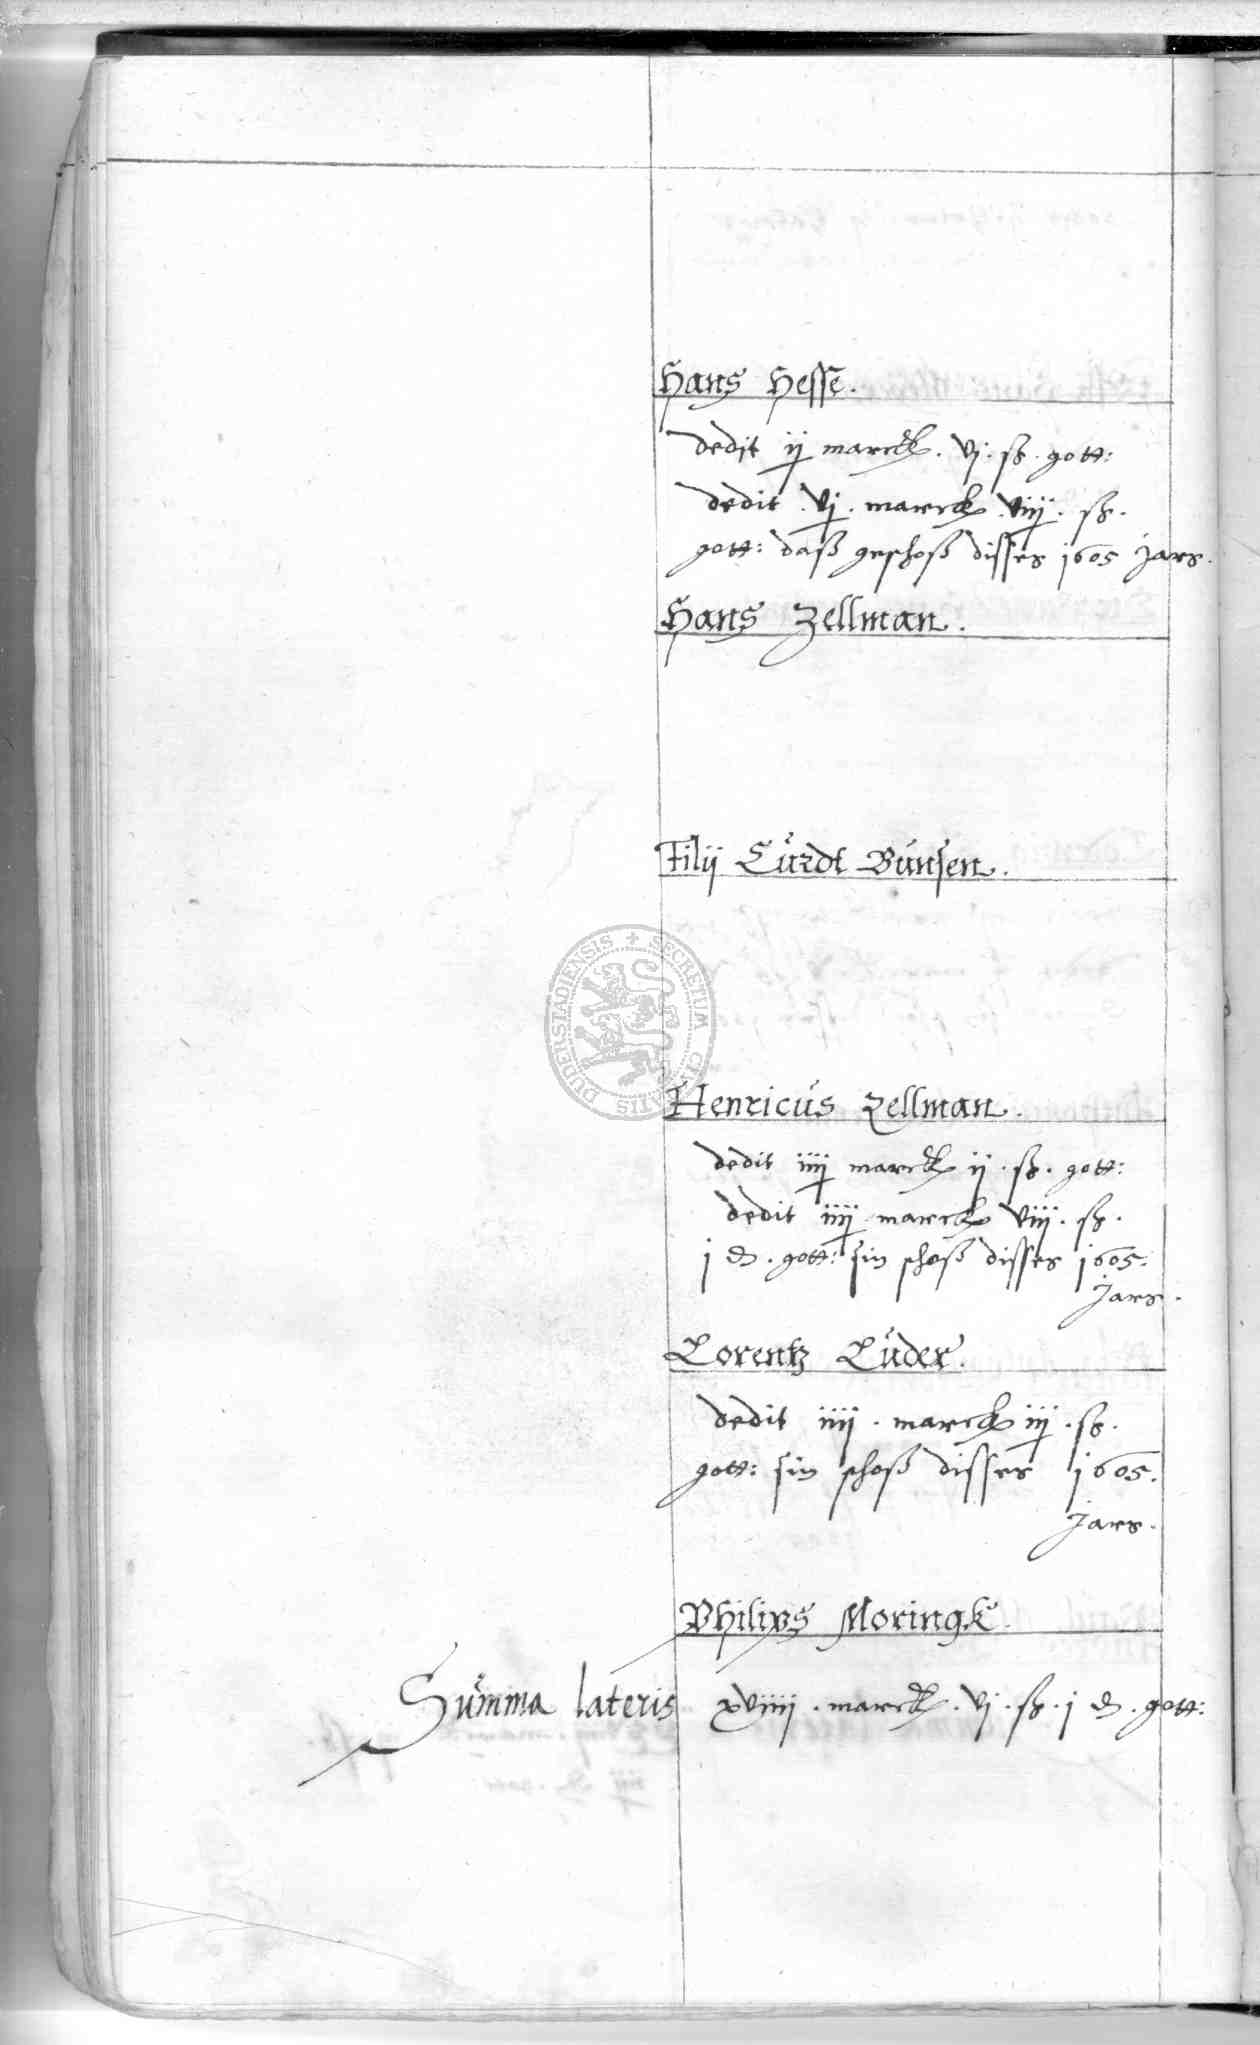 Hans Hesse.
dedit ij marck. vj. ß. gott:
dedit . vj . marck viij . ß.
gott: daß geschoß disses 1605 Jars.
Hans Zellman.
Filij Cŭrdt Bŭnsen.
SECRETUM CIVITATIS DUDERSTADIENSIS
Henricŭs Zellman.
dedit iiij marck ij . ß. gott:
dedit iiij marck viij . ß.
j ₰. gott: sin schoß disses 1605.
Jars.
Lorentz Lŭder.
dedit iiij . marck iij . ß.
gott: sin schoß disses 1605.
Jars.
Philips Moringk.
Sŭmma lateris xviiij . marck . vj . ß. j ₰. gott: